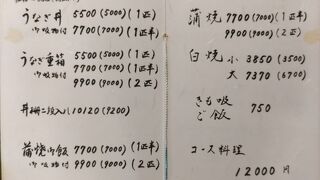 うなぎ丼 5500(5000)(1匹)
吸物付 7700(7000)(1匹半)
うなぎ重箱 7700(7000)(1匹半)
吸物付 9900(9000)(2匹)
丼 二段入り 10120(9200)
蒲焼御飯 7700(7000)(1匹半)
吸物付 9900(9000)(2匹)
蒲焼 7700(7000)(1匹半)
9900(9000)(2匹)
白焼 小 3850(3500)
大 7370(6700)
きも吸
ご飯 750
コース料理
12000円